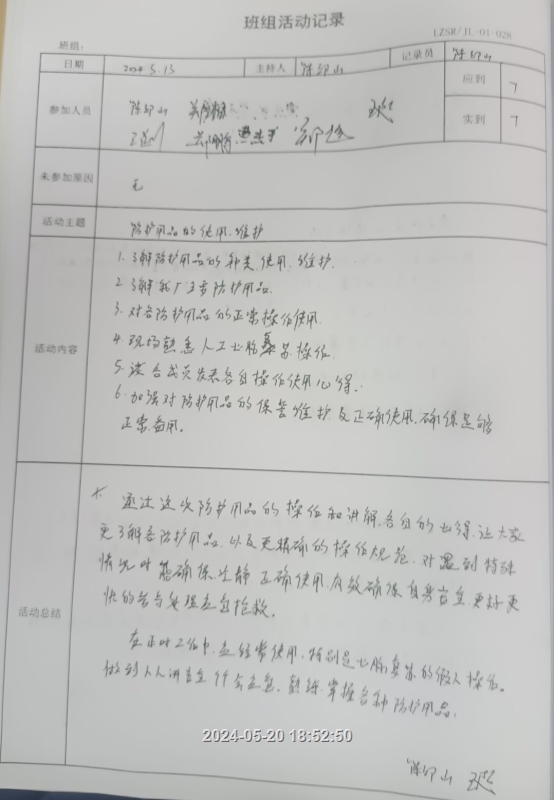 班组活动记录
LZSR/JL-01-028
班组:
日期 2024.5.13 主持人 陈印山 记录员 陈印山
应到 7
参加人员 陈印山
实到 7
未参加原因 无
活动主题 防护用品的使用、维护
活动内容
1. 了解防护用品的种类、使用、维护.
2 了解我厂主要防护用品.
3. 对各防护用品的正常操作使用.
4. 现场熟悉人工心肺复苏操作.
5. 谈合成员发表各自操作使用心得.
6. 加强对防护用品的保管维护及正确使用、确保足够
正常备用。
活动总结
通过这次防护用品的操作和讲解、各自的心得、让大家
更了解各防护用品、以及更精确的操作规范、对遇到特殊
情况时能确保冷静 正确使用、有效确保自身安全、更好更
快的参与处理应急抢救。
在平时工作中、应经常使用、特别是心肺复苏的假人操作。
做到人人讲安全 会应急、熟练掌握各种防护用品.
2024-05-20 18:52:50
陈印山